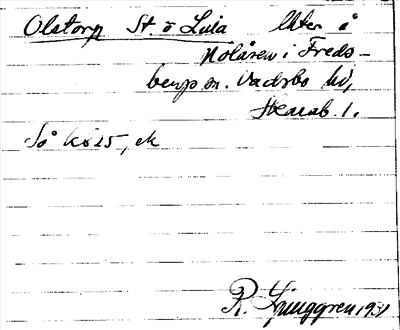 Olstorp St. o Lilla Åker å
Nolåren i Freds-
berg sn. Vadsbo hd,
Skarab. l.
Så k 625, ek
R. Ljunggren 1931